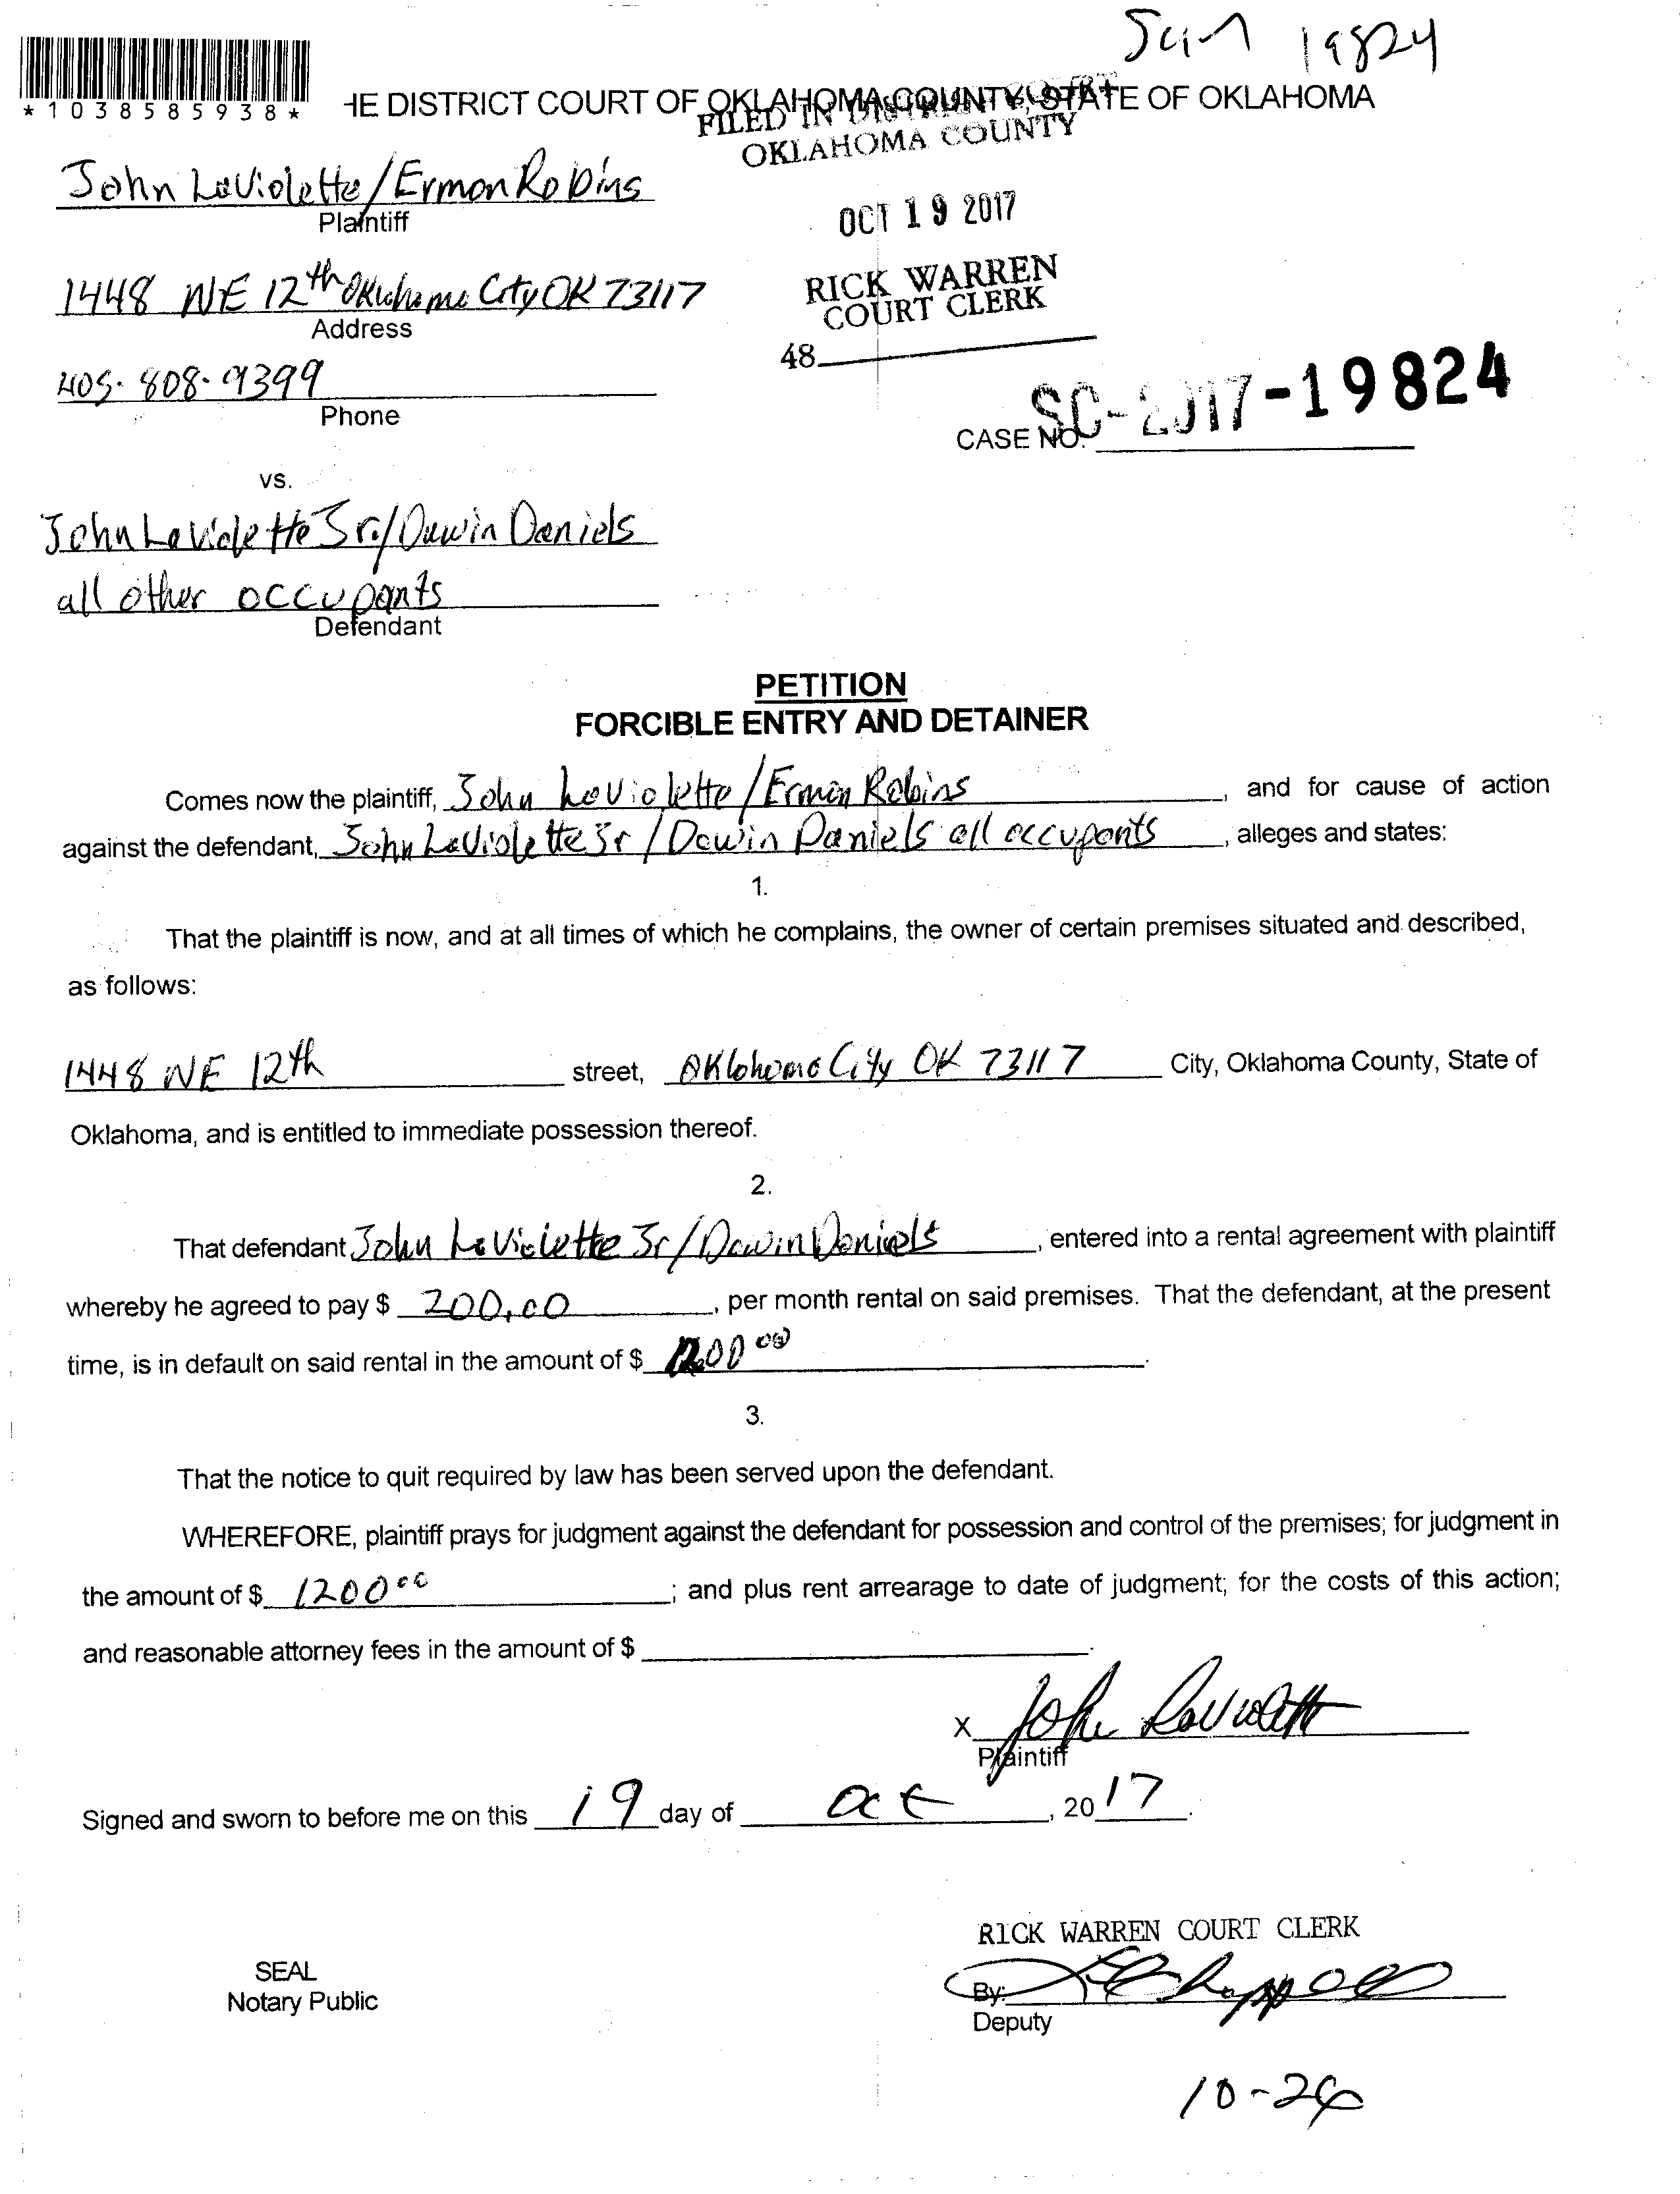 Scin 19824
*1038585938*
HE DISTRICT COURT OF OKLAHOMA COUNTY, STATE OF OKLAHOMA
FILED IN DISTRICT COURT
OKLAHOMA COUNTY
John LaViolette/Ermon Robins
Plaintiff
OCT 19 2017
1448 NE 12th Oklahoma City OK 73117
Address
RICK WARREN
COURT CLERK
48
405-808-9399
Phone
CASE NO. SC-2017-19824
vs.
John LaViolette Sr./Dawin Daniels
all other occupants
Defendant
PETITION
FORCIBLE ENTRY AND DETAINER
Comes now the plaintiff, John LaViolette/Ermon Robins, and for cause of action
against the defendant, John LaViolette Sr/Dawin Daniels all occupants, alleges and states:
1.
That the plaintiff is now, and at all times of which he complains, the owner of certain premises situated and described,
as follows:
1448 NE 12th street, Oklahoma City OK 73117 City, Oklahoma County, State of
Oklahoma, and is entitled to immediate possession thereof.
2.
That defendant John LaViolette Sr/Dawin Daniels, entered into a rental agreement with plaintiff
whereby he agreed to pay $ 200.00, per month rental on said premises. That the defendant, at the present
time, is in default on said rental in the amount of $ 1200 00.
3.
That the notice to quit required by law has been served upon the defendant.
WHEREFORE, plaintiff prays for judgment against the defendant for possession and control of the premises; for judgment in
the amount of $ 1200 00; and plus rent arrearage to date of judgment; for the costs of this action;
and reasonable attorney fees in the amount of $.
X John LaViolette
Plaintiff
Signed and sworn to before me on this 19 day of Oct, 2017.
RICK WARREN COURT CLERK
SEAL
Notary Public
By:
Deputy
10-26